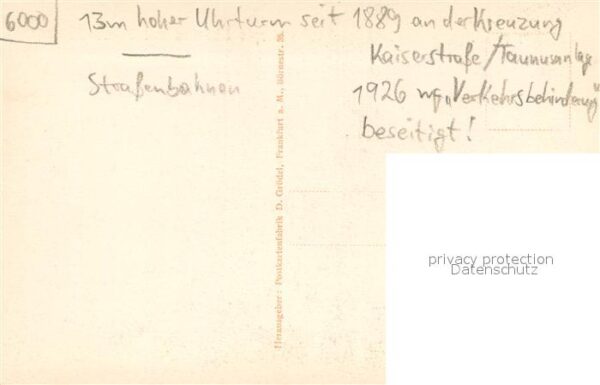 6000
13m hoher Uhrturm seit 1889 an der Kreuzung
Kaiserstraße/Taunusanlage
Straßenbahnen
1926 wg. „Verkehrsbehinderung"
beseitigt!
Herausgeber: Postkartenfabrik D. Grödel, Frankfurt a. M., Börnestr. 26.
privacy protection
Datenschutz